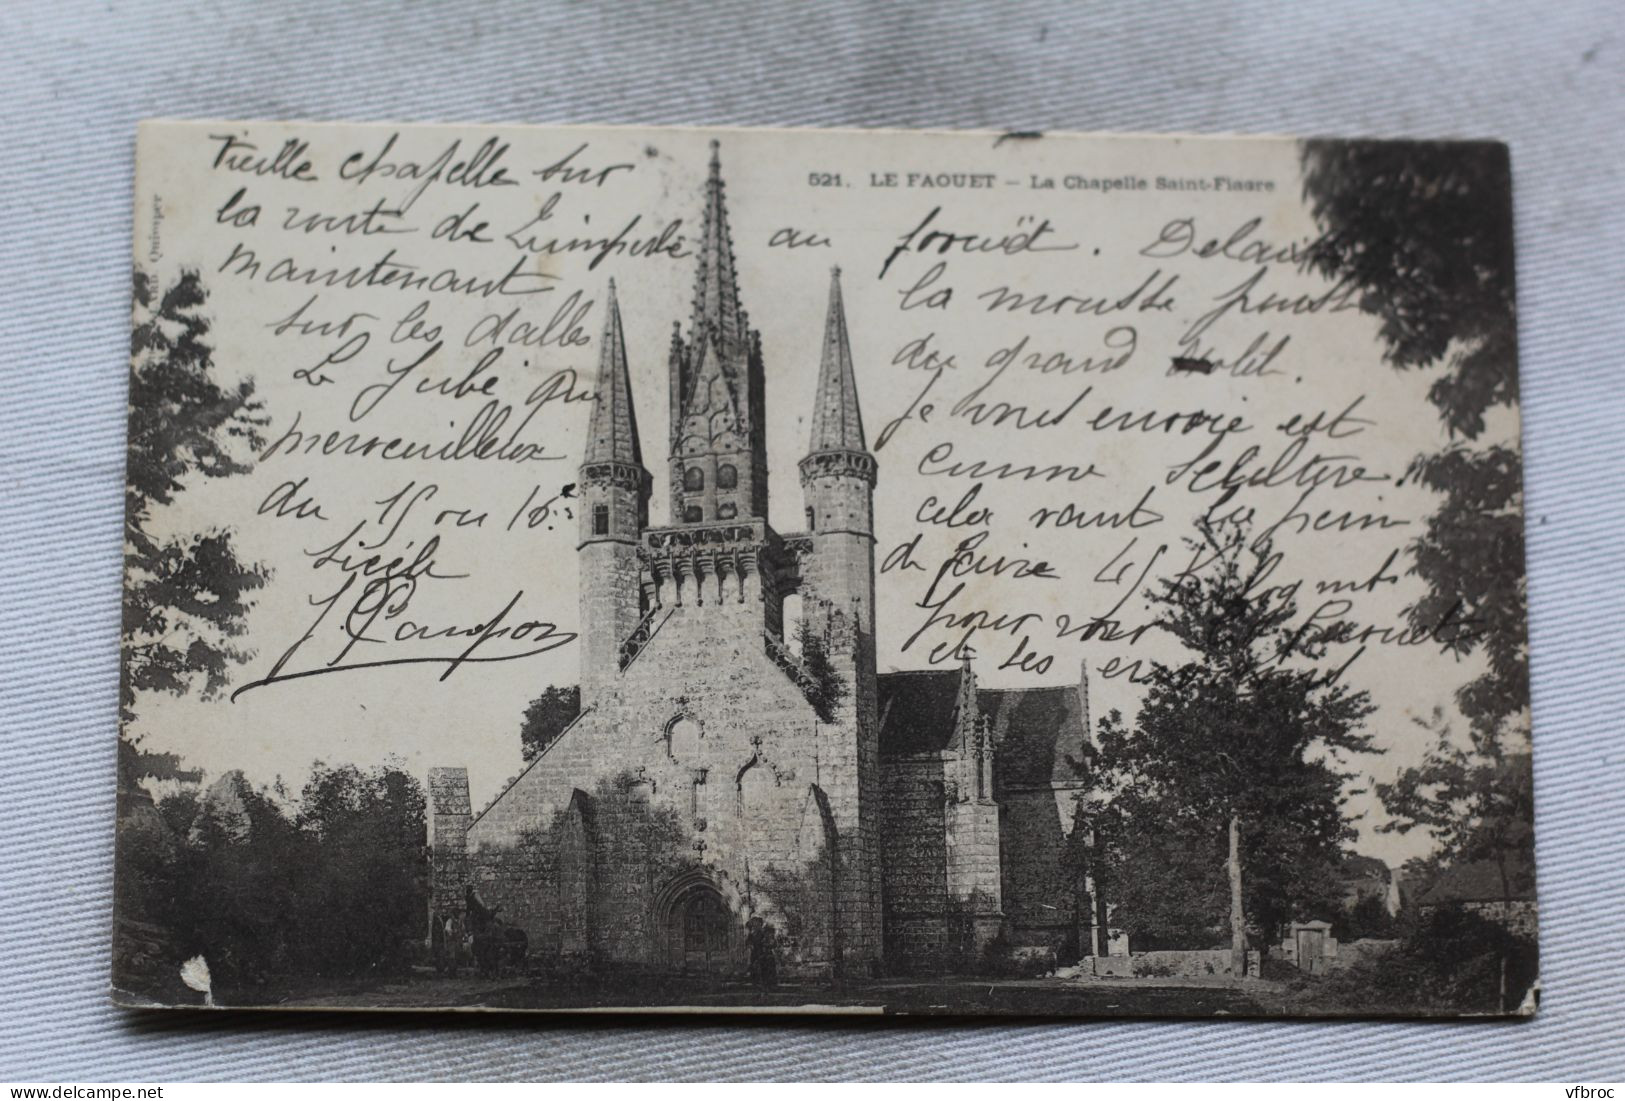 521. LE FAOUET — La Chapelle Saint-Fiacre
Vieille chapelle sur
la route de Quimperlé au faouët. Delais
maintenant la mousse pousse
sur les dalles du grand
Le Jubé qui Je vous envoie est
merveilleux
du 15 ou 16e cela vaut la peine
siècle de faire 45 K
pour voir le faouet
et ses environs
Quimper
vfbroc